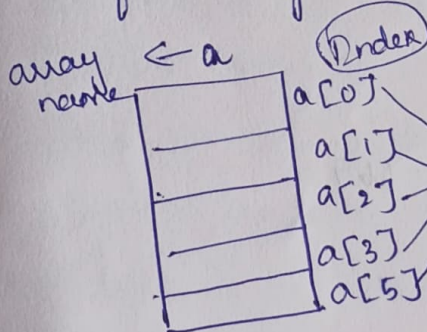 array ← a
name
Index
a[0]
a[1]
a[2]
a[3]
a[5]